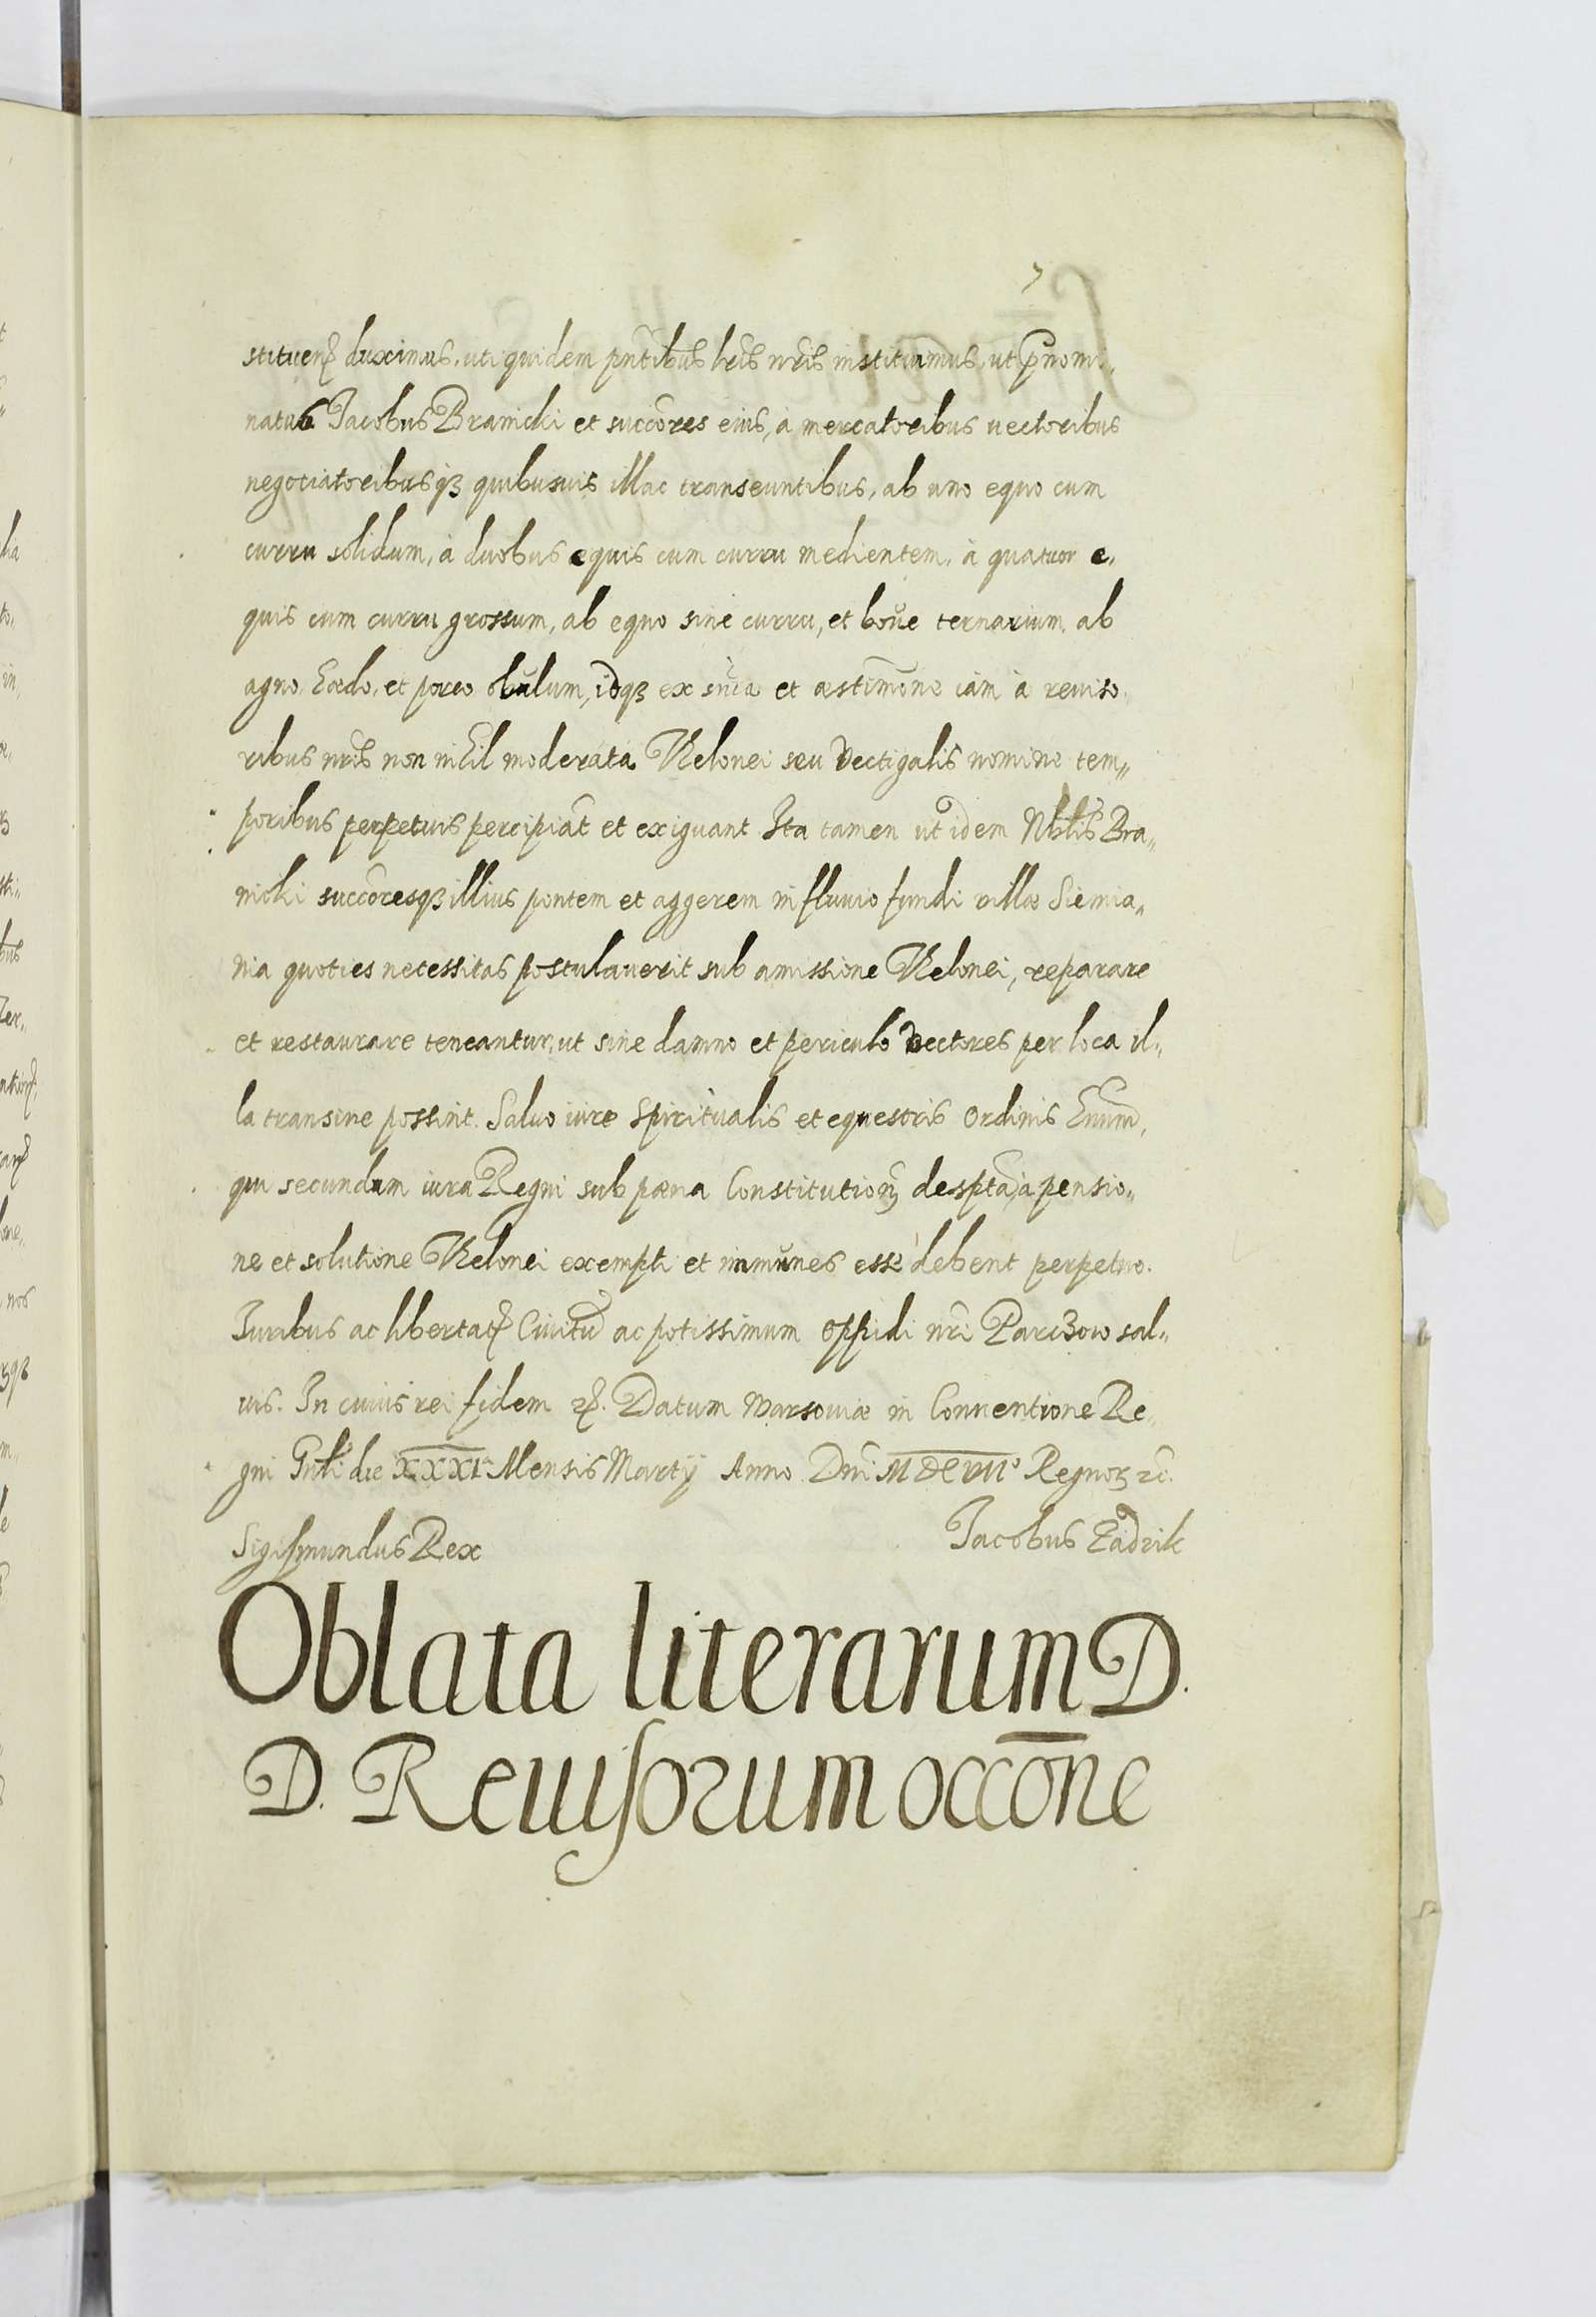 7
stituenɖ duximus, uti quidem pñtibus lris nris instituimus, ut pnomi„
natus Jacobus Branicki et succores eius, à mercatoribus vectoribus
negotiatoribusqꝫ quibusuis illac transeuntibus, ab uno equo cum
curru solidum, à duobus equis cum curru medientem, à quatuor e„
quis cum curru grossum, ab equo sine curru, et boue ternarium, ab
agno, hoedo, et porco obulum, idqꝫ ex snia et æstimõne iam à reuiso„
ribus nris non nihil moderata Thelonei seu vectigalis nomine tem„
poribus perpetuis percipiãt et exiguant Ita tamen ut idem Nblis Bra„
nicki succoresqꝫ illius pontem et aggerem in fluuio fundi villæ Siemia„
nia quoties necessitas postulauerit sub amissione Thelonei, reparare
et restaurare teneantur, ut sine damno et periculo vectores per loca il„
la transire possint. Saluo iure Spiritualis et equestris ordinis
qui secundum iura Regni sub pæna Constitutionꝫ despta, à pensio„
ne et solutione Thelonei exempti et immunes esse debent perpetuo.
Juribus ac libertatꝭ Ciuitũ ac potissimum oppidi nri Parczow sal„
uis. In cuius rei fidem ꝛꝭ. Datum Warsouiæ in Conuentione Re„
gni Gnli die XXXI Mensis Martij Anno Dni MDCVII° Regnoꝝ ꝛc.
Sigismundus Rex Jacobus Zadzik
Oblata literarum D.
D. Reuisorum occõne